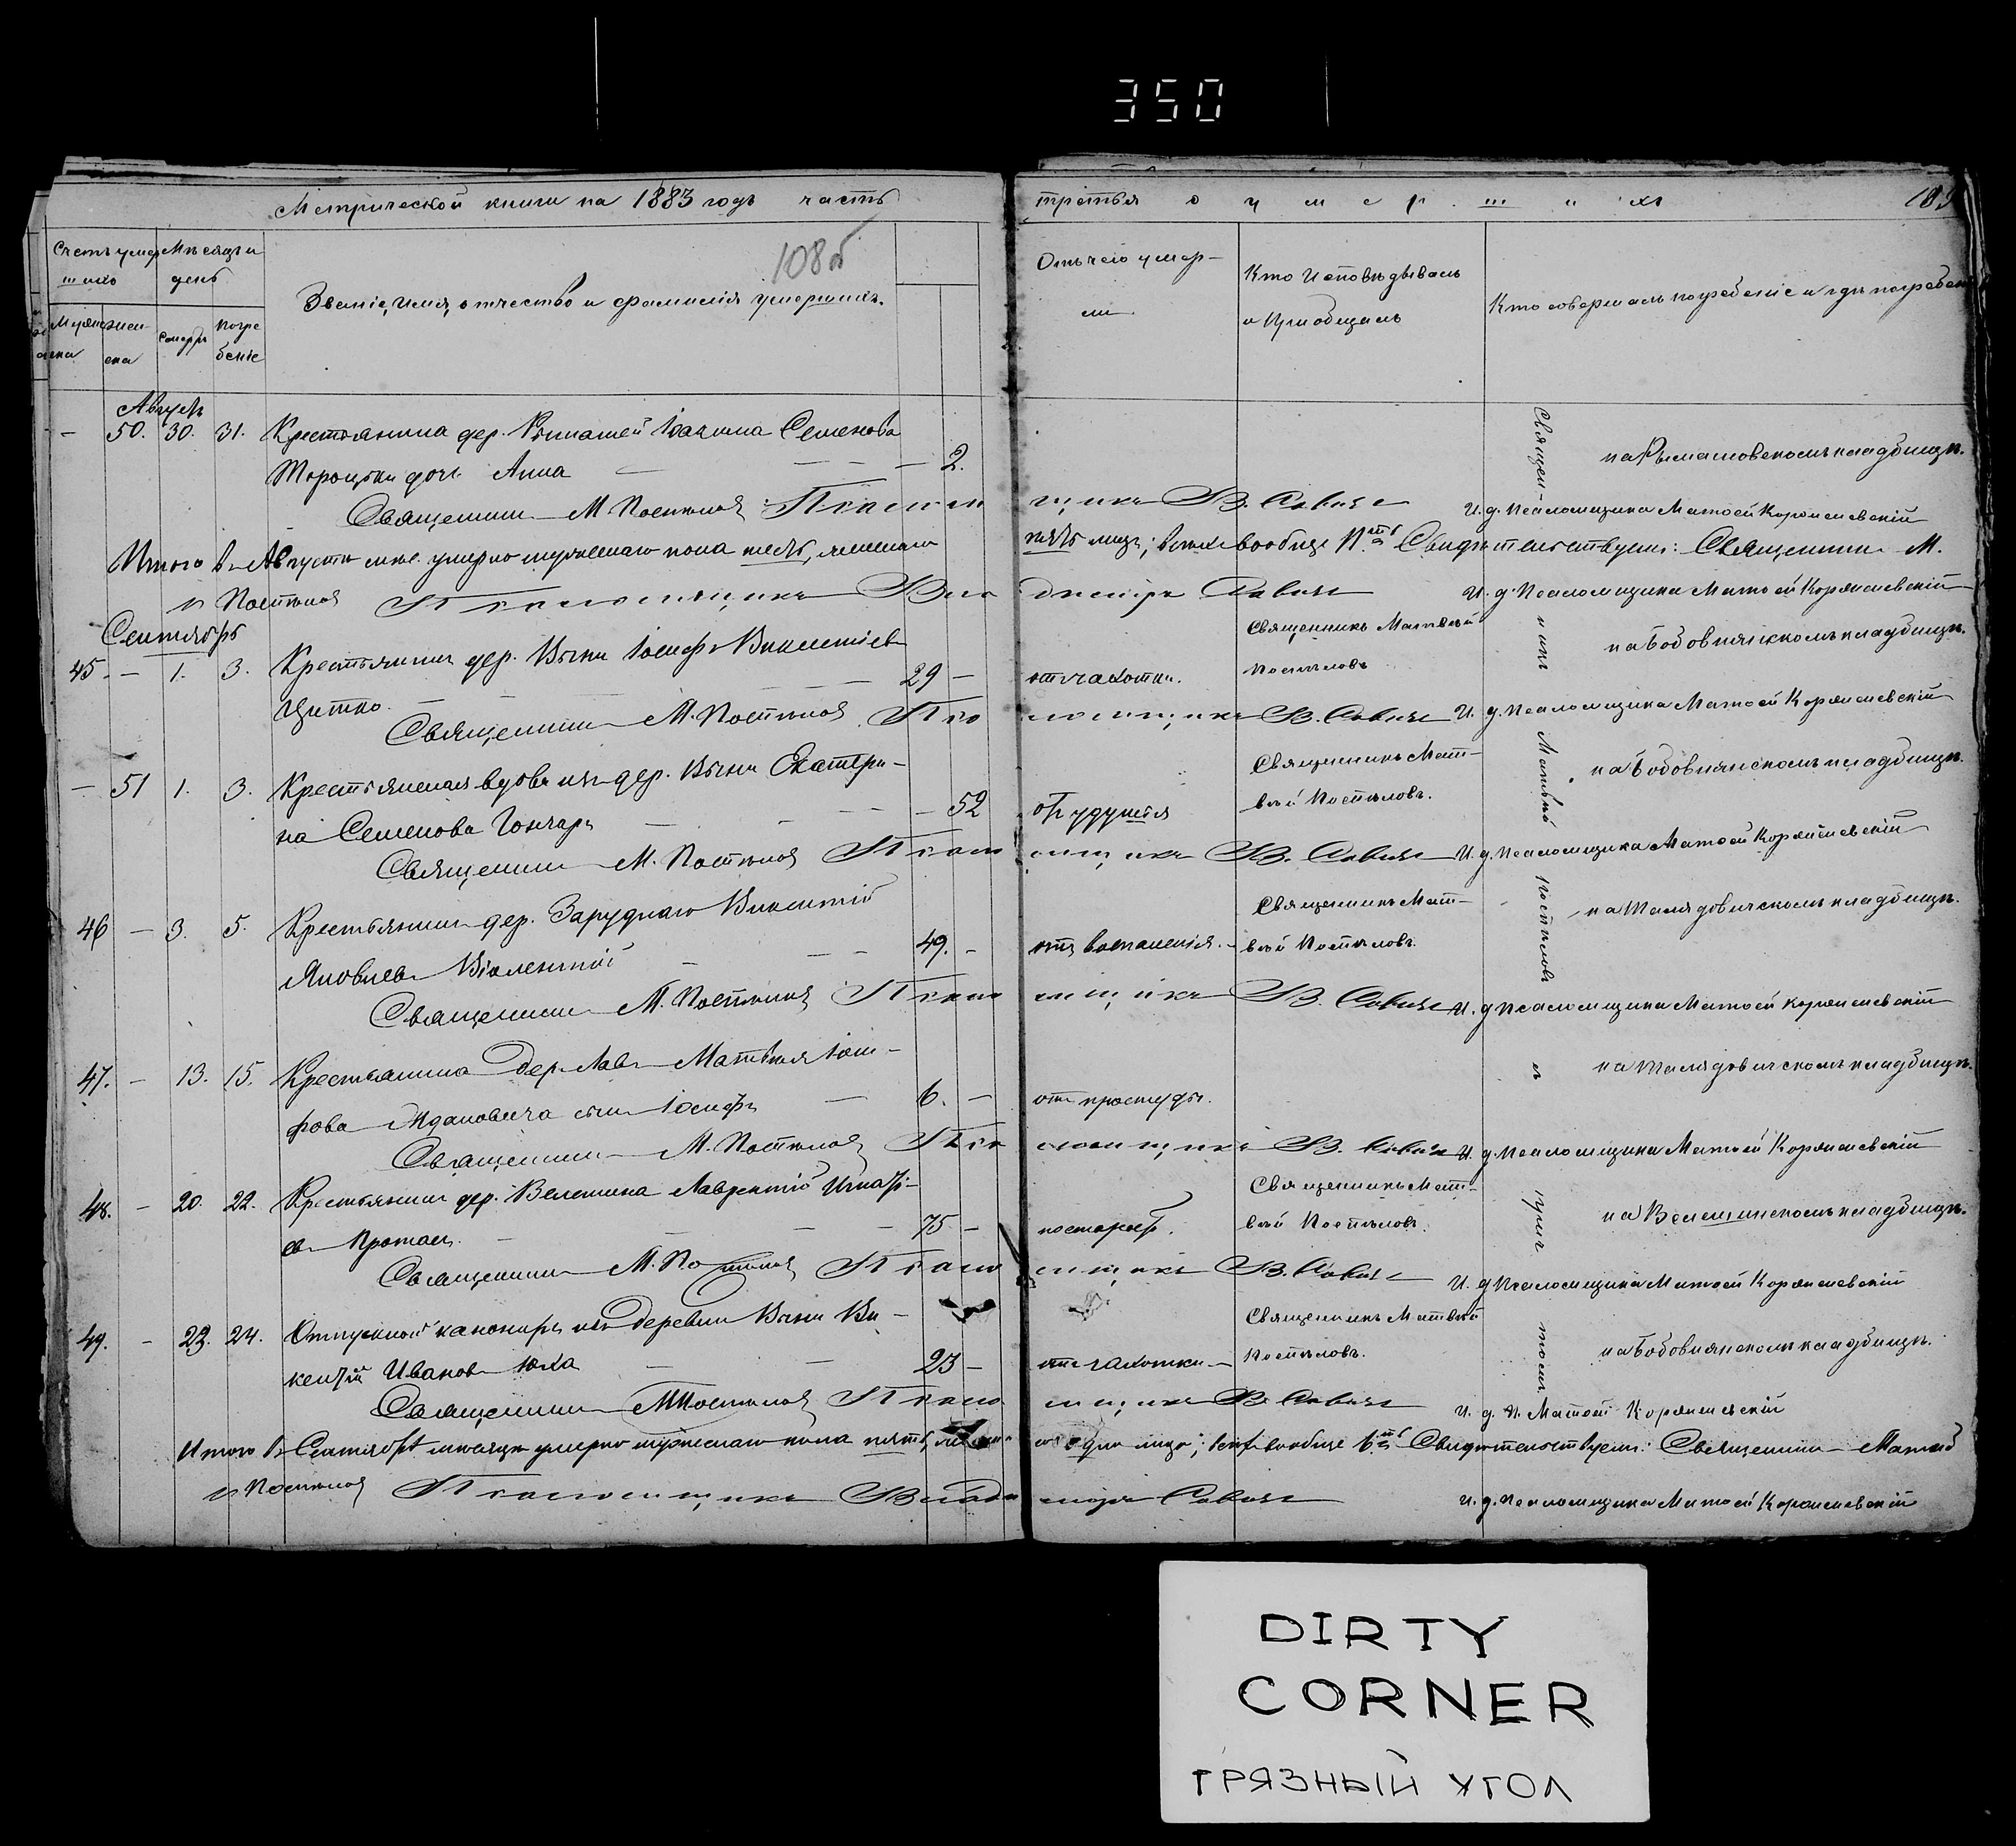 350
Метрической книги на 1883 годъ часть третья о умершихъ
108об
Счетъ умершихъ
Мѣсяцъ и день
Званіе, имя, отчество и фамилія умершихъ.
Отъ чего умерли
Кто исповѣдывалъ и пріобщалъ
Кто совершалъ погребеніе и гдѣ погребены
Женска
Смерть
Погребеніе
Августъ
— 50. 30. 31. Крестьянина дер. Іоакима Семенова
дочь Анна — — — 2.
на кладбищѣ.
Священникъ М. Поспѣловъ Псаломщикъ В. Савичъ И. д. Псаломщика Матѳей
Итого въ Августѣ мѣс. умерло мужескаго пола шесть, женскаго пять лицъ; всѣхъ вообще 11ть Свидѣтельствуемъ: Священникъ М.
Поспѣловъ Псаломщикъ Владиміръ Савичъ И. д. Псаломщика Матѳей
Сентябрь
45. — 1. 3. Крестьянинъ дер. Выни Іосифъ Викентіевъ
Цитко. 29 — отъ чахотки.
Священникъ Матвѣй
Поспѣловъ
на Бобовнянскомъ кладбищѣ.
Священникъ М. Поспѣловъ Псаломщикъ В. Савичъ И. д. Псаломщика Матѳей
— 51 1. 3. Крестьянская вдова изъ дер. Выни Екатери-
на Семенова Гончаръ — — — — 52 отъ удушья
Священникъ Мат-
вѣй Поспѣловъ.
на Бобовнянскомъ кладбищѣ.
Священникъ М. Поспѣловъ Псаломщикъ В. Савичъ И. д. Псаломщика Матѳей
46 — 3. 5. Крестьянинъ дер. Заруднаго Викентій
Яковлевъ — — — 49. — отъ воспаленія.
Священникъ Мат-
вѣй Поспѣловъ.
на Телядовичскомъ кладбищѣ.
Священникъ М. Поспѣловъ Псаломщикъ В. Савичъ И. д. Псаломщика Матѳей
47. — 13. 15. Крестьянина дер. Лавъ Матвѣя
Ждановича сынъ Іосифъ — 6. — отъ простуды.
на Телядовичскомъ кладбищѣ.
Священникъ М. Поспѣловъ Псаломщикъ В. Савичъ И. д. Псаломщика Матѳей
48. — 20. 22. Крестьянинъ дер. Велешина Лаврентій Игнаті-
евъ — — — 75 — по старости.
Священникъ Мат-
вѣй Поспѣловъ.
на Велешинскомъ кладбищѣ.
Священникъ М. Поспѣловъ Псаломщикъ В. Савичъ И. д. Псаломщика Матѳей
49. — 22. 24. Отпускной канониръ изъ деревни Выни Ви-
кентій Ивановъ Юха — — 23 — отъ чахотки —
Священникъ Матвѣй
Поспѣловъ.
на Бобовнянскомъ кладбищѣ.
Священникъ М. Поспѣловъ Псаломщикъ В. Савичъ И. д. П. Матѳей
Священникъ Матвѣй Поспѣловъ съ причтомъ
Итого въ Сентябрѣ мѣсяцѣ умерло мужескаго пола пять, одно лицо; всѣхъ вообще 6ть Свидѣтельствуемъ: Священникъ Матвѣй
Поспѣловъ Псаломщикъ Владиміръ Савичъ И. д. Псаломщика Матѳей
DIRTY
CORNER
ГРЯЗНЫЙ УГОЛ